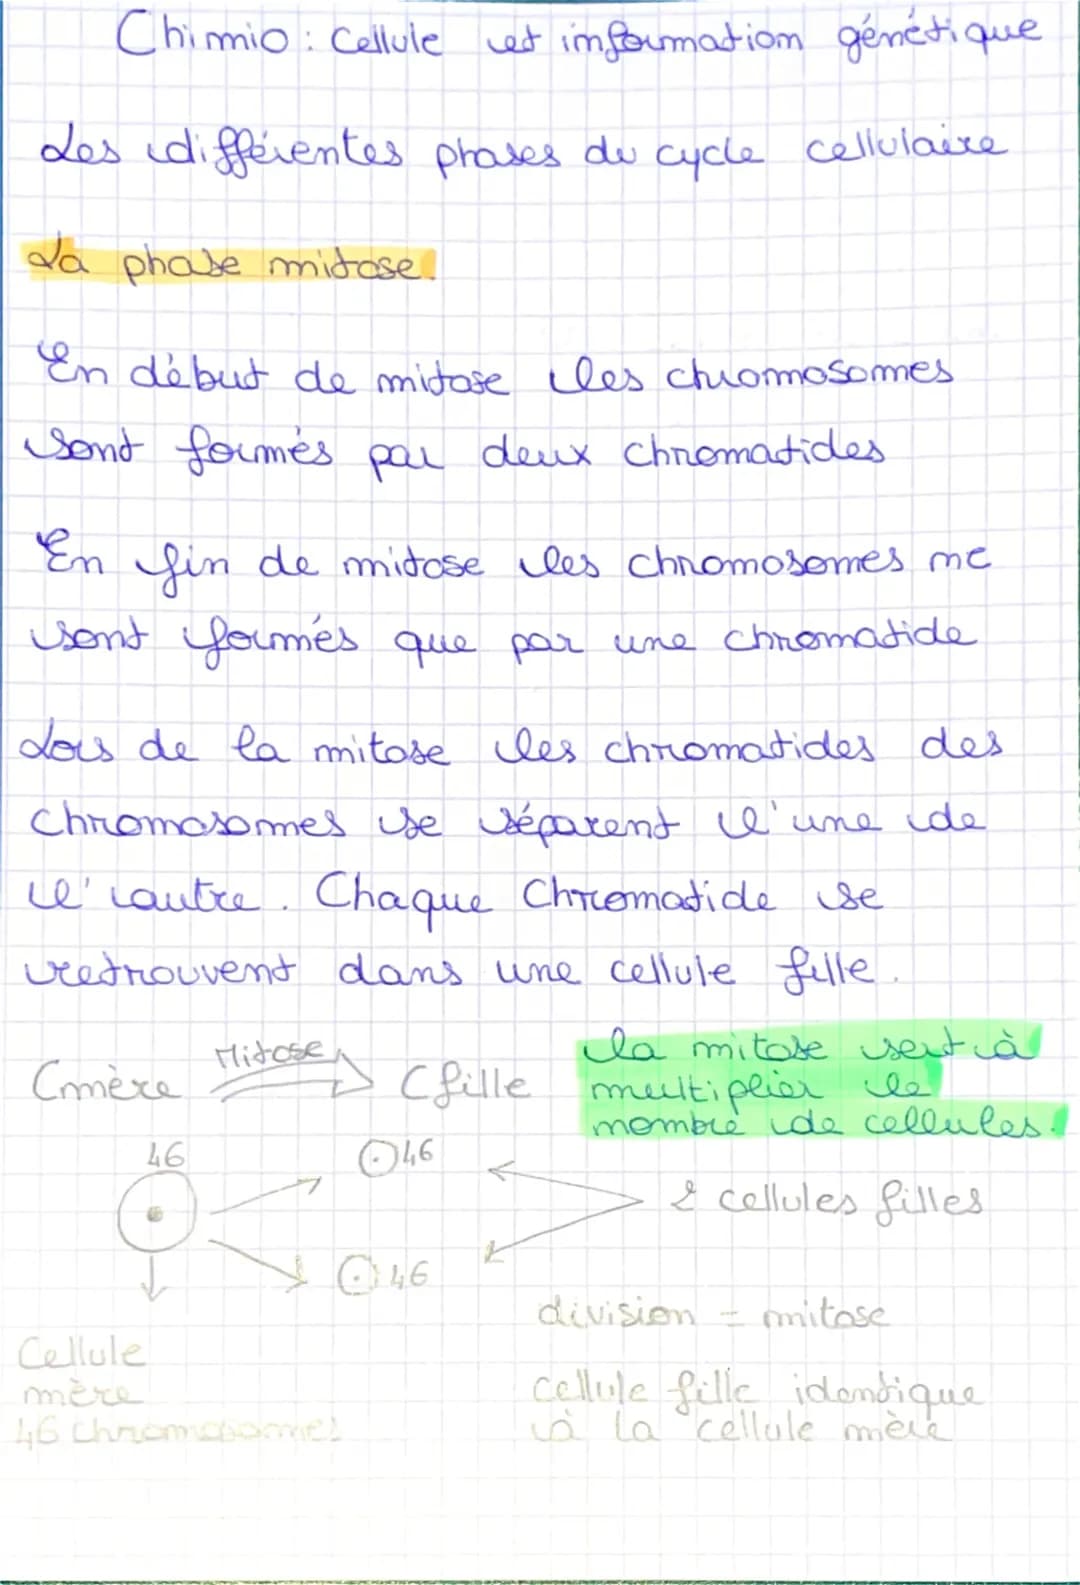 Chimio : Cellule et information génétique
Les différentes phases du cycle cellulaire
La phase mitose.
En début de mitose les chromosomes
sont formés par deux chromatides
En fin de mitose les chromosomes ne
sont formés que par une chromatide
Lors de la mitose les chromatides des
chromosomes se séparent l'une de
l'autre. Chaque Chromatide se
retrouvent dans une cellule fille.
Cmère Mitose Cfille
la mitose sert à
multiplier le
nombre de cellules.
46
46
2 cellules filles
46
division = mitose
Cellule
mère
46 Chromosomes
cellule fille identique
à la cellule mère